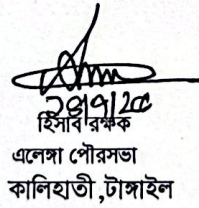 হিসাব রক্ষক
এলেঙ্গা পৌরসভা
কালিহাতী,টাঙ্গাইল